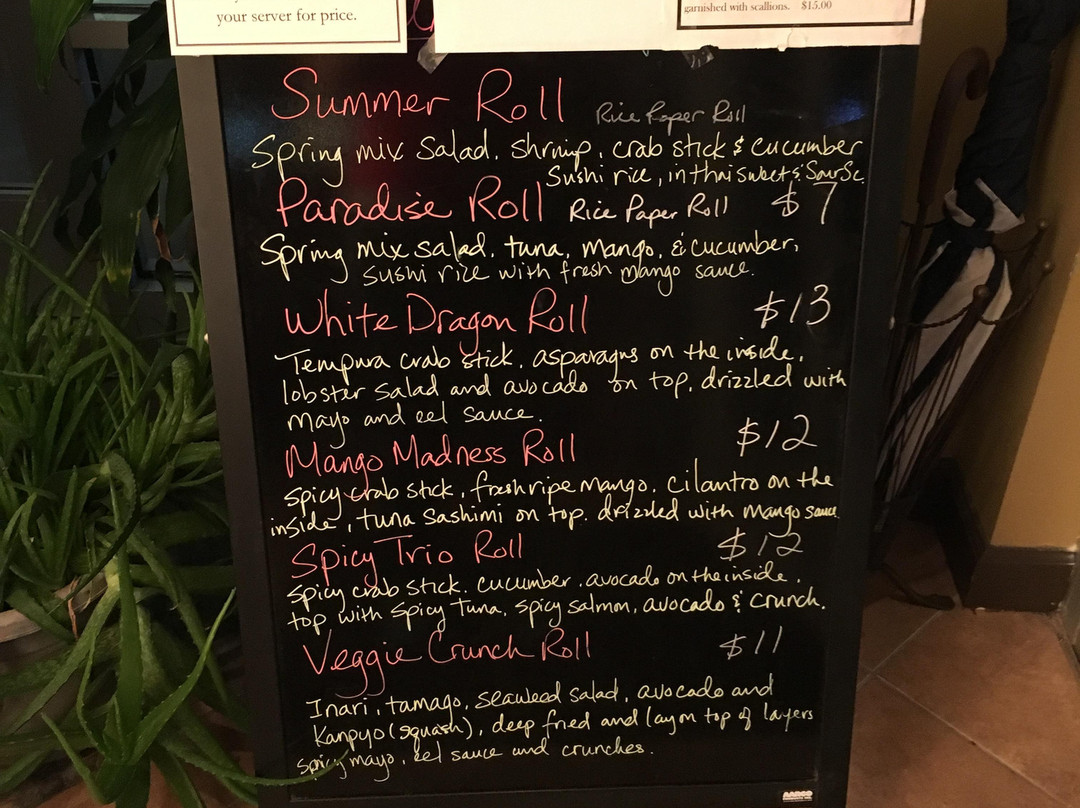 your server for price.
garnished with scallions. $15.00
Summer Roll Rice Paper Roll
Spring mix salad, shrimp, crab stick & cucumber
Sushi rice, in thai sweet & Sour Sc.
Paradise Roll Rice Paper Roll $7
Spring mix salad, tuna, mango, & cucumber,
sushi rice with fresh mango sauce.
White Dragon Roll $13
Tempura crab stick, asparagus on the inside,
lobster salad and avocado on top, drizzled with
mayo and eel sauce.
Mango Madness Roll $12
spicy crab stick, fresh ripe mango, cilantro on the
inside, tuna sashimi on top. drizzled with mango sauce
Spicy Trio Roll $12
spicy crab stick. cucumber. avocado on the inside.
top with spicy tuna, spicy salmon, avocado & crunch.
Veggie Crunch Roll $11
Inari, tamago, seaweed salad, avocado and
Kanpyo (squash), deep fried and lay on top of layers
spicy mayo, eel sauce and crunches.
AARCO